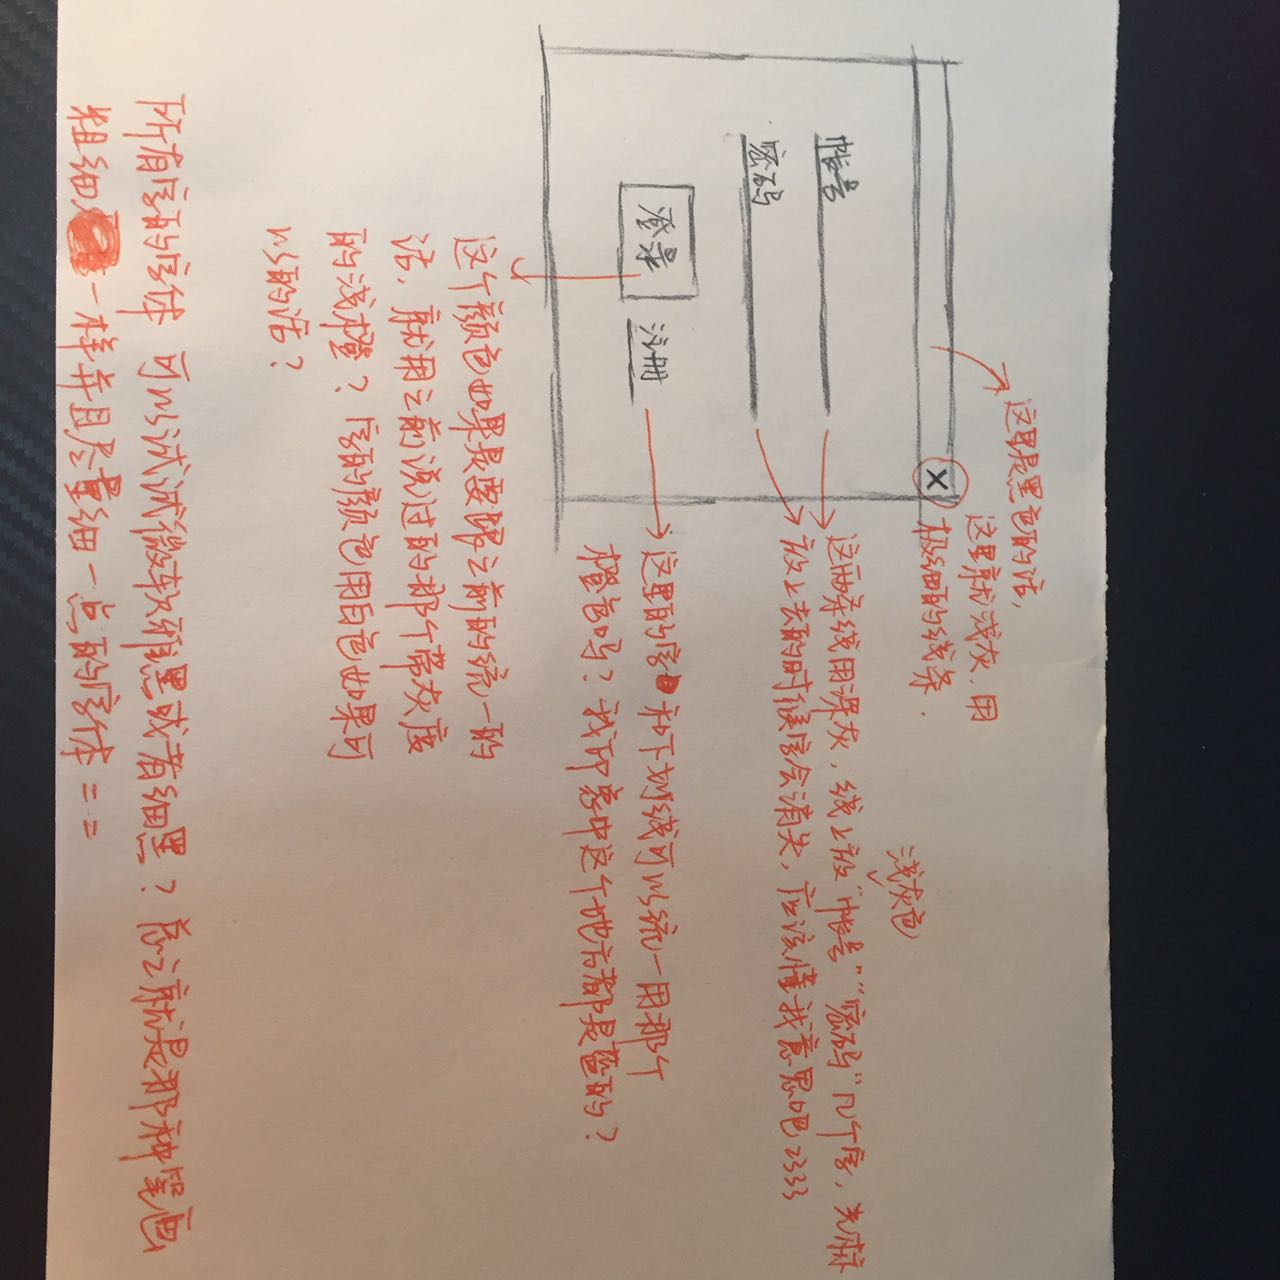 这里是黑色的话,
这里就浅灰,用
极细的线条.
×
浅灰色
帐号
这两条线用深灰,线上放"帐号""密码"几个字,光标
放上去的时候字会消失,应该懂我意思吧2333
密码
登录
注册
这里的字和下划线可以统一用那个
橙色吗?我印象中这个地方都是蓝的?
这个颜色如果是要跟之前的统一的
话,就用之前说过的那个带灰度
的浅橙?字的颜色用白色如果可
以的话?
所有字的字体 可以试试微软雅黑或者细黑?总之就是那种笔画
粗细一样并且尽量细一点的字体==